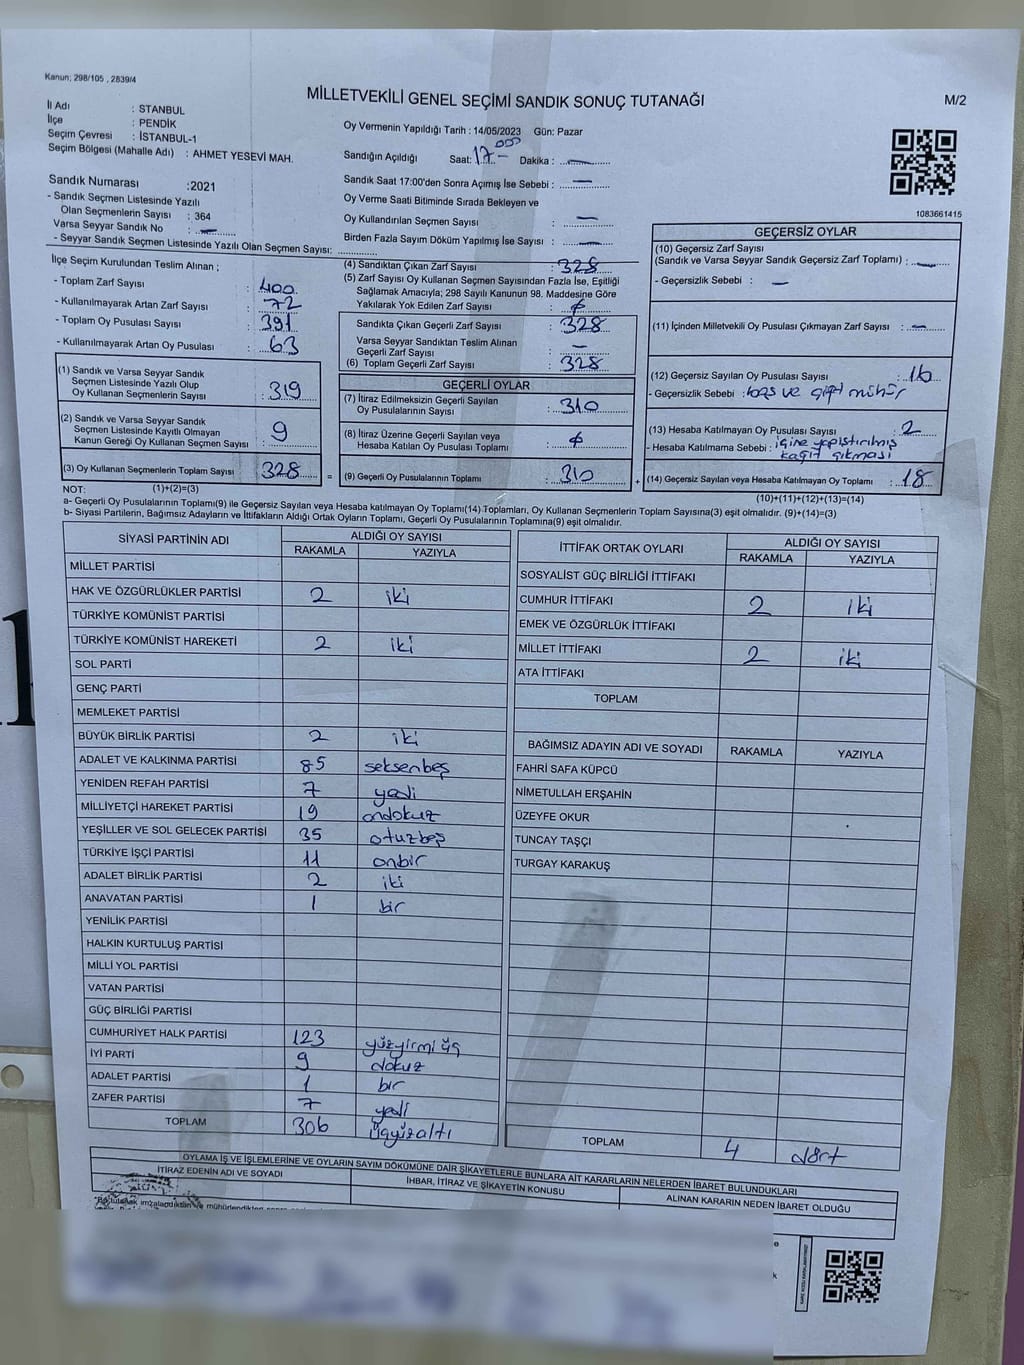 Kanun; 298/105 , 2839/4
MİLLETVEKİLİ GENEL SEÇİMİ SANDIK SONUÇ TUTANAĞI
M/2
İl Adı : STANBUL
İlçe : PENDİK
Seçim Çevresi : İSTANBUL-1
Seçim Bölgesi (Mahalle Adı) : AHMET YESEVİ MAH.
Sandık Numarası :2021
- Sandık Seçmen Listesinde Yazılı
Olan Seçmenlerin Sayısı : 364
Varsa Seyyar Sandık No : —
- Seyyar Sandık Seçmen Listesinde Yazılı Olan Seçmen Sayısı:
Oy Vermenin Yapıldığı Tarih : 14/05/2023 Gün: Pazar
Sandığın Açıldığı Saat: 17.- Dakika : —
Sandık Saat 17:00'den Sonra Açımış İse Sebebi : —
Oy Verme Saati Bitiminde Sırada Bekleyen ve
Oy Kullandırılan Seçmen Sayısı : —
Birden Fazla Sayım Döküm Yapılmış İse Sayısı : —
1083661415
İlçe Seçim Kurulundan Teslim Alınan ;
- Toplam Zarf Sayısı : 400
- Kullanılmayarak Artan Zarf Sayısı : 72
- Toplam Oy Pusulası Sayısı : 391
- Kullanılmayarak Artan Oy Pusulası : 63
(1) Sandık ve Varsa Seyyar Sandık
Seçmen Listesinde Yazılı Olup
Oy Kullanan Seçmenlerin Sayısı : 319
(2) Sandık ve Varsa Seyyar Sandık
Seçmen Listesinde Kayıtlı Olmayan
Kanun Gereği Oy Kullanan Seçmen Sayısı : 9
(3) Oy Kullanan Seçmenlerin Toplam Sayısı : 328
(4) Sandıktan Çıkan Zarf Sayısı : 328
(5) Zarf Sayısı Oy Kullanan Seçmen Sayısından Fazla İse, Eşitliği
Sağlamak Amacıyla; 298 Sayılı Kanunun 98. Maddesine Göre
Yakılarak Yok Edilen Zarf Sayısı : ø
Sandıkta Çıkan Geçerli Zarf Sayısı : 328
Varsa Seyyar Sandıktan Teslim Alınan
Geçerli Zarf Sayısı : —
(6) Toplam Geçerli Zarf Sayısı : 328
GEÇERLİ OYLAR
(7) İtiraz Edilmeksizin Geçerli Sayılan
Oy Pusulalarının Sayısı : 310
(8) İtiraz Üzerine Geçerli Sayılan veya
Hesaba Katılan Oy Pusulalarının Toplamı : ø
= (9) Geçerli Oy Pusulalarının Toplamı : 310
GEÇERSİZ OYLAR
(10) Geçersiz Zarf Sayısı
(Sandık ve Varsa Seyyar Sandık Geçersiz Zarf Toplamı) : —
- Geçersizlik Sebebi : —
(11) İçinden Milletvekili Oy Pusulası Çıkmayan Zarf Sayısı : —
(12) Geçersiz Sayılan Oy Pusulası Sayısı : 16
- Geçersizlik Sebebi : boş ve çift mühür
(13) Hesaba Katılmayan Oy Pusulası Sayısı : 2
- Hesaba Katılmama Sebebi : içine yapıştırılmış
kağıt çıkması
+ (14) Geçersiz Sayılan veya Hesaba Katılmayan Oy Toplamı : 18
NOT: (1)+(2)=(3)
(10)+(11)+(12)+(13)=(14)
a- Geçerli Oy Pusulalarının Toplamı(9) ile Geçersiz Sayılan veya Hesaba katılmayan Oy Toplamı(14) Toplamları, Oy Kullanan Seçmenlerin Toplam Sayısına(3) eşit olmalıdır. (9)+(14)=(3)
b- Siyasi Partilerin, Bağımsız Adayların ve İttifakların Aldığı Ortak Oyların Toplamı, Geçerli Oy Pusulalarının Toplamına(9) eşit olmalıdır.
SİYASİ PARTİNİN ADI ALDIĞI OY SAYISI
RAKAMLA YAZIYLA
MİLLET PARTİSİ
HAK VE ÖZGÜRLÜKLER PARTİSİ 2 iki
TÜRKİYE KOMÜNİST PARTİSİ
TÜRKİYE KOMÜNİST HAREKETİ 2 iki
SOL PARTİ
GENÇ PARTİ
MEMLEKET PARTİSİ
BÜYÜK BİRLİK PARTİSİ 2 iki
ADALET VE KALKINMA PARTİSİ 85 seksenbeş
YENİDEN REFAH PARTİSİ 7 yedi
MİLLİYETÇİ HAREKET PARTİSİ 19 ondokuz
YEŞİLLER VE SOL GELECEK PARTİSİ 35 otuzbeş
TÜRKİYE İŞÇİ PARTİSİ 11 onbir
ADALET BİRLİK PARTİSİ 2 iki
ANAVATAN PARTİSİ 1 bir
YENİLİK PARTİSİ
HALKIN KURTULUŞ PARTİSİ
MİLLİ YOL PARTİSİ
VATAN PARTİSİ
GÜÇ BİRLİĞİ PARTİSİ
CUMHURİYET HALK PARTİSİ 123 yüzyirmi üç
İYİ PARTİ 9 dokuz
ADALET PARTİSİ 1 bir
ZAFER PARTİSİ 7 yedi
TOPLAM 306 üçyüzaltı
İTTİFAK ORTAK OYLARI ALDIĞI OY SAYISI
RAKAMLA YAZIYLA
SOSYALİST GÜÇ BİRLİĞİ İTTİFAKI
CUMHUR İTTİFAKI 2 iki
EMEK VE ÖZGÜRLÜK İTTİFAKI
MİLLET İTTİFAKI 2 iki
ATA İTTİFAKI
TOPLAM
BAĞIMSIZ ADAYIN ADI VE SOYADI RAKAMLA YAZIYLA
FAHRİ SAFA KÜPCÜ
NİMETULLAH ERŞAHİN
ÜZEYFE OKUR
TUNCAY TAŞÇI
TURGAY KARAKUŞ
TOPLAM 4 dört
OYLAMA İŞ VE İŞLEMLERİNE VE OYLARIN SAYIM DÖKÜMÜNE DAİR ŞİKAYETLERLE BUNLARA AİT KARARLARIN NELERDEN İBARET BULUNDUKLARI
İTİRAZ EDENİN ADI VE SOYADI İHBAR, İTİRAZ VE ŞİKAYETİN KONUSU ALINAN KARARIN NEDEN İBARET OLDUĞU